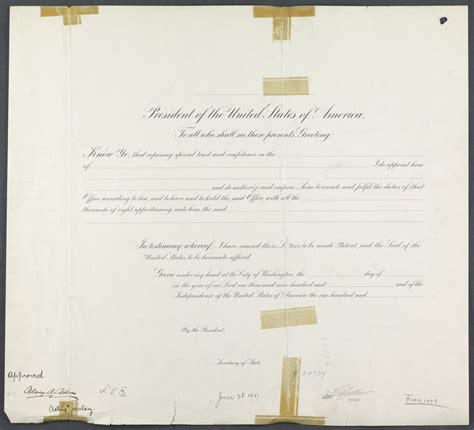 President of the United States of America.
To all who shall see these presents, Greeting:
Know Ye, that reposing special trust and confidence in the
of I do appoint him
and do authorize and empower him to execute and fulfil the duties of that
Office according to law, and to have and to hold the said Office, with all the
thereunto of right appertaining, unto him the said
In testimony whereof, I have caused these Letters to be made Patent, and the Seal of the
United States to be hereunto affixed.
Given under my hand at the City of Washington, the day of
in the year of our Lord one thousand nine hundred and and of the
Independence of the United States of America the one hundred and
By the President:
Secretary of State.
Approved
Acting Secretary
June 28